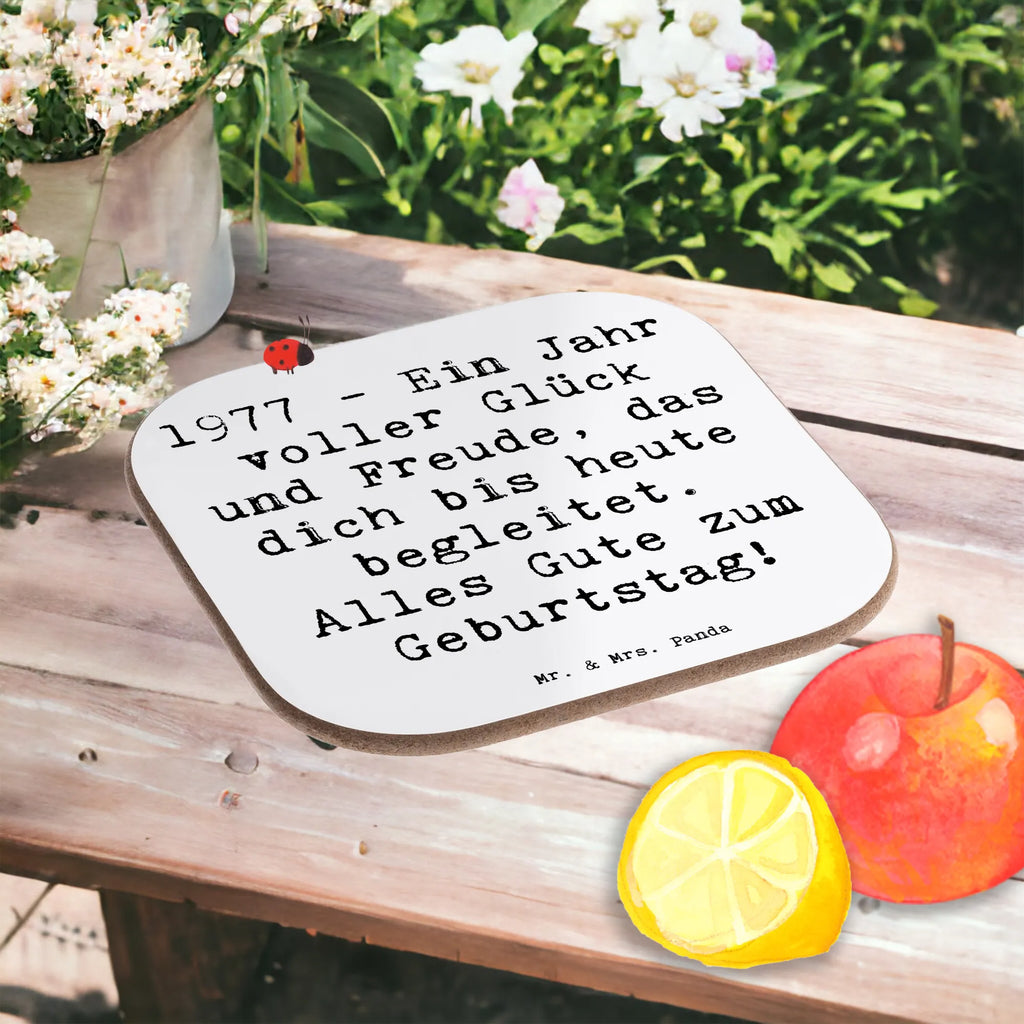 1977 - Ein Jahr
voller Glück
und Freude, das
dich bis heute
begleitet.
Alles Gute zum
Geburtstag!
Mr. & Mrs. Panda